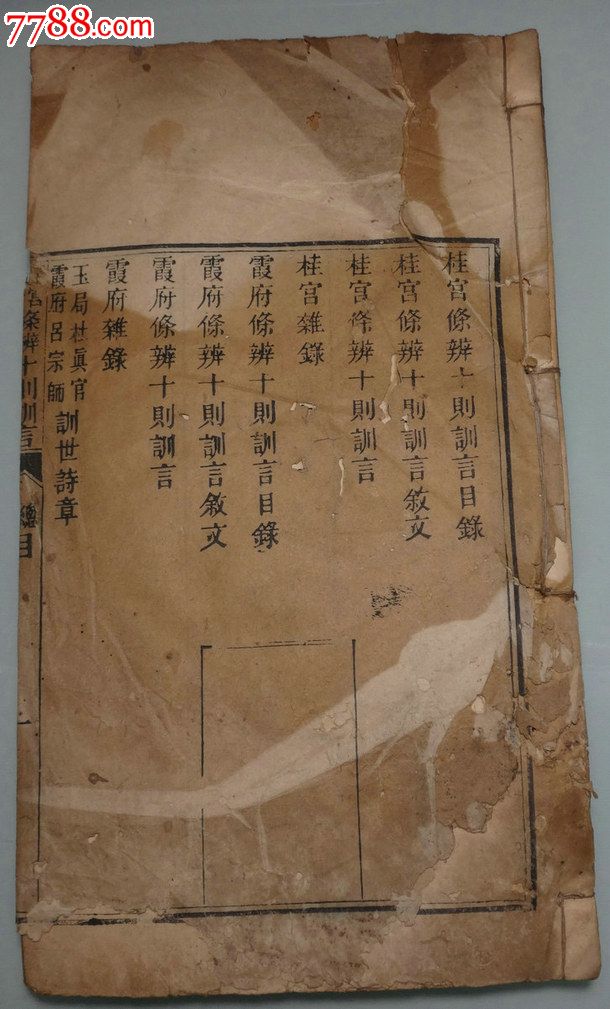 7788.com
桂宮條辨十則訓言目錄
桂宮條辨十則訓言敘文
桂宮條辨十則訓言
桂宮雜錄
霞府條辨十則訓言目錄
霞府條辨十則訓言敘文
霞府條辨十則訓言
霞府雜錄
玉局杜眞官
霞府呂宗師
訓世詩章
條辨十則訓言
總目